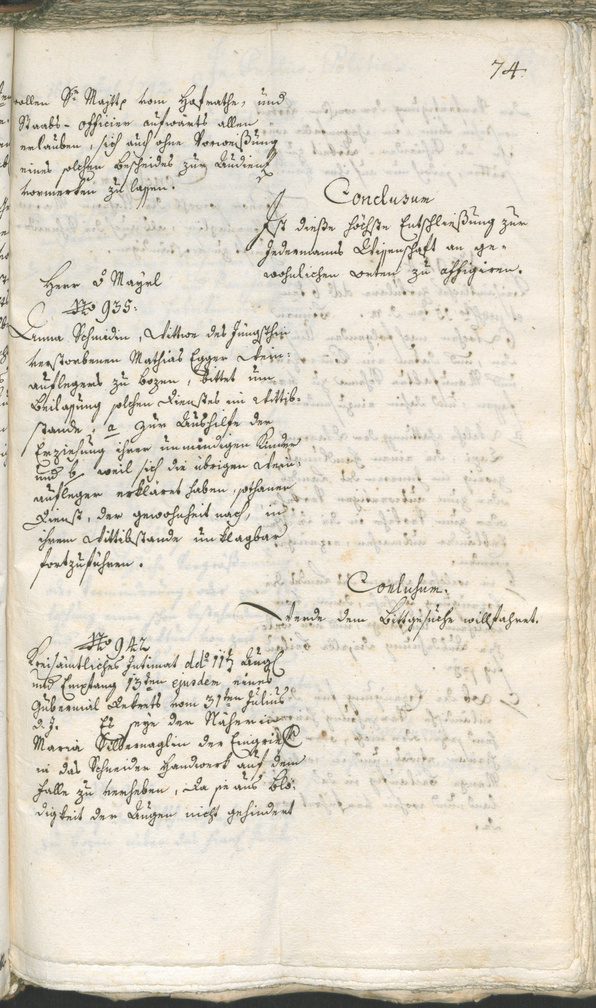 74.
wollen Sr. Majtt. vom Hofrathe, und
Staabs-officier aufwärts allen
erlauben, sich auch ohne Vorweißung
eines solchen Bescheides zur Audienz
vormerken zu lassen.
Conclusum
Ist dieße höchste Entschließung zur
Jedermanns Wissenschaft an ge-
wohnlichen Orten zu affigiren.
Herr v Mayrl
No 935.
Anna Schmidin, Wittwe des jüngsthin
verstorbenen Mathias Egger Wein-
auflegers zu Bozen, bittet um
Beilaßung solchen Dienstes im Wittib-
stande, a zur Aushilfe der
Erziehung ihrer unmündigen Kinder
und b, weil sich die übrigen Wein-
aufleger erkläret haben, sothanen
Dienst, der gewohnheit nach, in
ihrem Wittibstande unklagbar
fortzuführen.
Conclusum.
Werde dem Bittgesuche willfahret.
No 942
Kreisämtliches Intimat ddo 11t Aug
und Empfang 13ten ejusdem eines
Gubernial Dekrets vom 31ten Julius
d. J. Es seye der Näherin
Maria Silbernaglin der Eingriff
in das Schneider Handwerk auf dem
Falle zu verheben, da sie aus Blö-
digkeit der Augen nicht gehindert